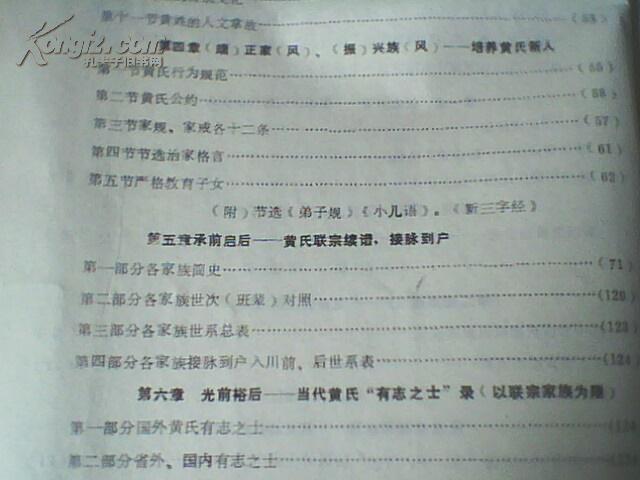 第十一节黄姓的人文掌故……(53)
第四章(端)正家(风)、(振)兴族(风)——培养黄氏新人
第一节黄氏行为规范……(55)
第二节黄氏公约……(56)
第三节家规、家戒各十二条……(57)
第四节节选治家格言……(61)
第五节严格教育子女……(62)
(附)节选《弟子规》《小儿语》。《新三字经》
第五章承前启后——黄氏联宗续谱,接脉到户
第一部分各家族简史……(71)
第二部分各家族世次(班辈)对照……(120)
第三部分各家族世系总表……(123)
第四部分各家族接脉到户入川前、后世系表……(124)
第六章 光前裕后——当代黄氏“有志之士”录(以联宗家族为限)
第一部分国外黄氏有志之士……
第二部分省外、国内有志之士……
Kongfz.com
孔夫子旧书网